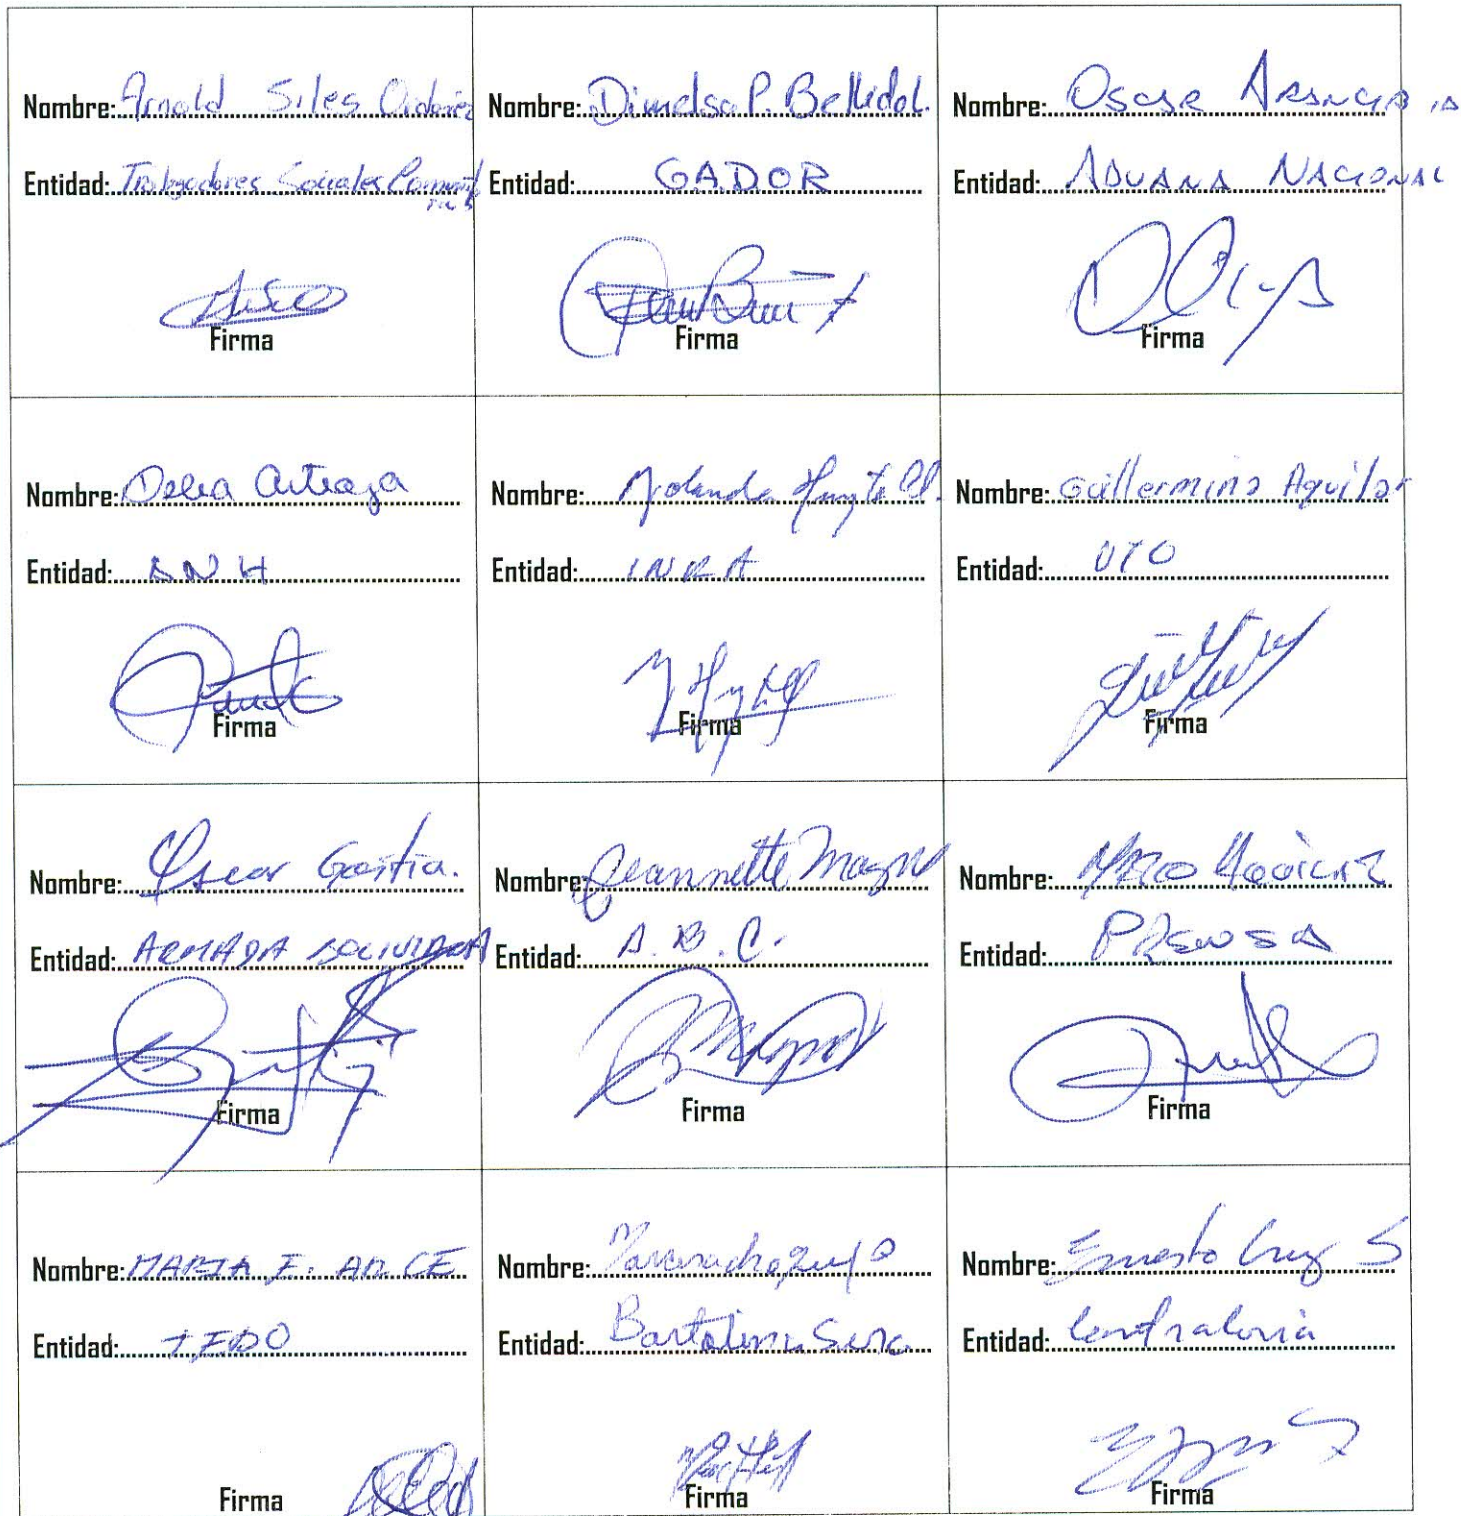 Nombre: Arnold Siles Ordoñez
Entidad: Trabajadores Sociales
Firma
Nombre: Dimelsa P. Bellido L.
Entidad: GADOR
Firma
Nombre: Oscar Arancibia
Entidad: ADUANA NACIONAL
Firma
Nombre: Delia Arteaga
Entidad: ANH
Firma
Nombre: Yolanda
Entidad: INRA
Firma
Nombre: Guillermina Aguilar
Entidad: UTO
Firma
Nombre: Oscar Goitia.
Entidad: ARMADA BOLIVIANA
Firma
Nombre: Jeannette Magne
Entidad: A.B.C.
Firma
Nombre:
Entidad:
Firma
Nombre: MARIA E. ARCE
Entidad:
Firma
Nombre:
Entidad: Bartolina Sisa
Firma
Nombre: Ernesto Cruz S
Entidad: Contraloria
Firma